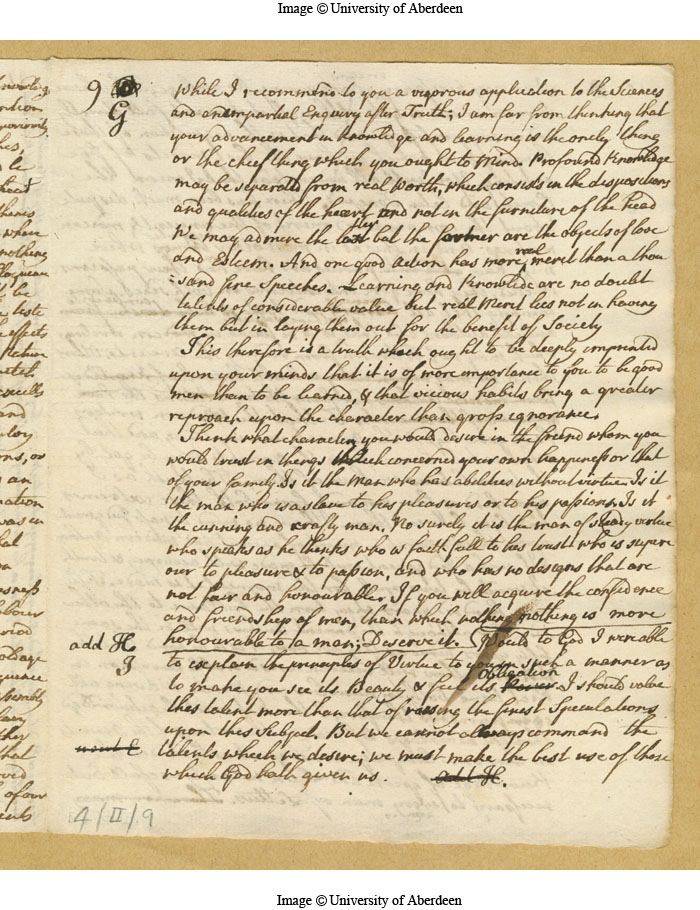 Image © University of Aberdeen
9
G
While I recommend to you a vigorous application to the Sciences
and an impartial Enquiry after Truth; I am far from thinking that
your advancement in Knowledge and learning is the onely thing
or the chief thing which you ought to Mind. Profound Knowledge
may be separated from real Worth, which consists in the dispositions
and qualities of the heart and not in the furniture of the head
We may admire the latter but the former are the objects of love
and Esteem. And one good Action has more real merit than a thou
sand fine Speeches. Learning and Knowledge are no doubt
talents of considerable value but real Merit lies not in having
them but in laying them out for the benefit of Society
This therefore is a truth which ought to be deeply imprinted
upon your minds that it is of more importance to you to be good
men than to be learned, & that vicious habits bring a greater
reproach upon the character than gross ignorance.
Think what character you would desire in the friend whom you
would trust in things which concerned your own happiness or that
of your family. Is it the man who has abilities without virtue. Is it
the man who is a slave to his pleasures or to his passions. Is it
the cunning and crafty man. No surely it is the man of steady virtue
who speaks as he thinks who is faithfull to his trust who is superi
our to pleasure & to passion, and who has no designs that are
not fair and honourable. If you will acquire the confidence
and friendship of men, than which nothing nothing is more
honourable to a man; Deserve it. Would to God I were able
add H
J
to explain the principles of Virtue to you in such a manner as
to make you see its Beauty & feel its Power Obligation. I should value
this talent more than that of raising the finest Speculations
upon this Subject. But we cannot always command the
talents which we desire; we must make the best use of those
which God hath given us. add H.
4/II/9
Image © University of Aberdeen